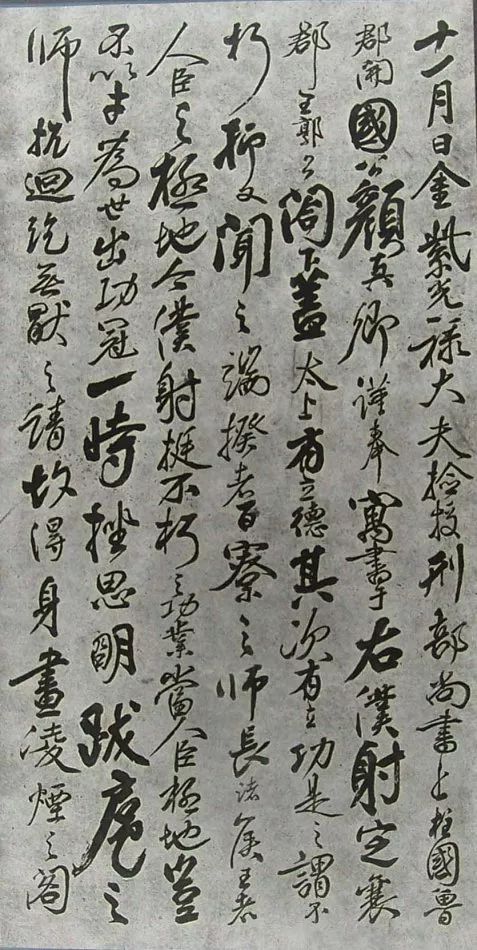 十一月日金紫光禄大夫撿挍刑部尚書上柱國魯
郡開國公顏真卿謹奉寓書于右僕射定襄
郡王郭公閤下蓋太上有立德其次有立功是之謂不
朽抑又聞之端揆者百寮之師長諸侯王者
人臣之極地今僕射挺不朽之功業當人臣極地豈
不以才為世出功冠一時挫思明跋扈之
師抗迴紇無厭之請故得身畫淩煙之閣